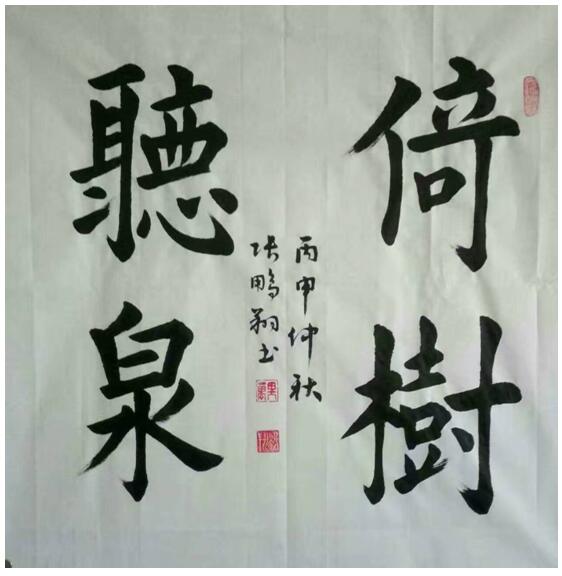 倚樹
聽泉
丙申仲秋
张鹏翔书